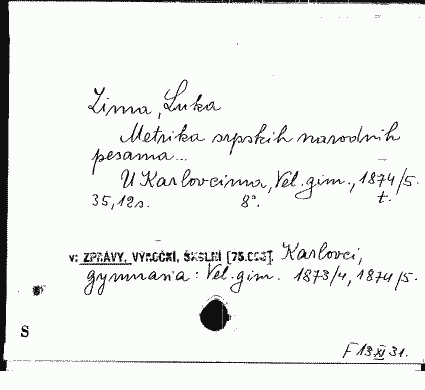 Zima, Luka
Metrika srpskih narodnih
pesama...
U Karlovcima, Vel. gim., 1874/5.
35, 12 s. 8°. t.
v: ZPRÁVY, VÝROČNÍ, ŠKOLNÍ [75.C53]. Karlovci,
gymnasia: Vel. gim. 1873/4, 1874/5.
S
F 13 XI 31.